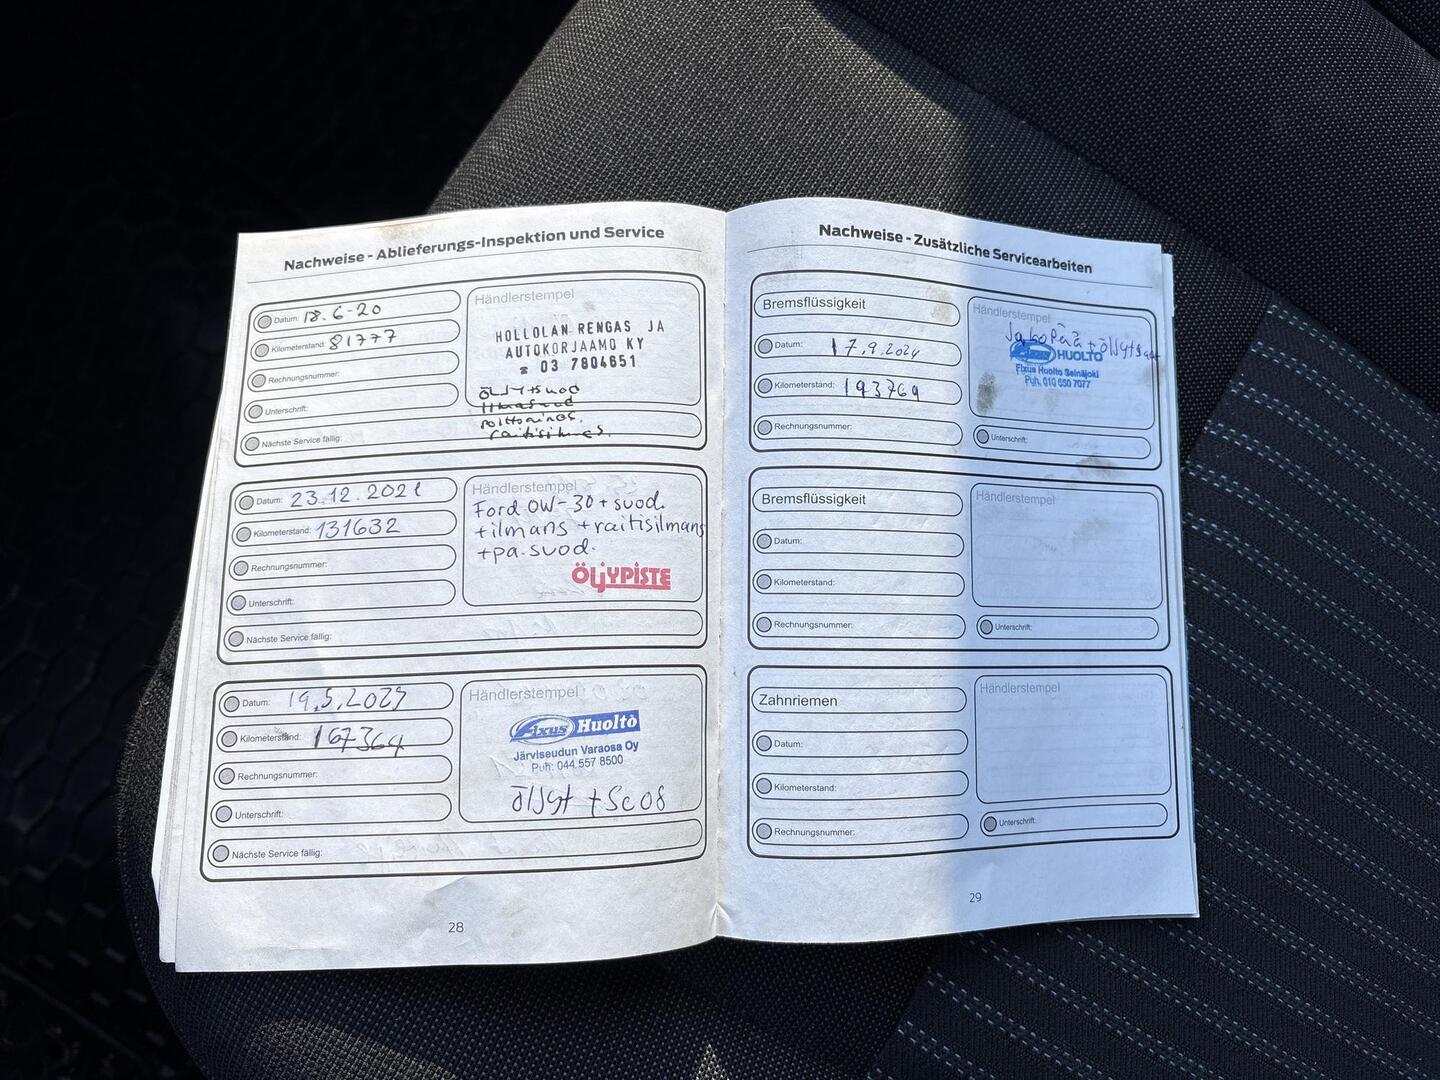 Nachweise - Ablieferungs-Inspektion und Service
Datum: 18.6-20
Kilometerstand: 81777
Rechnungsnummer:
Unterschrift:
Nächste Service fällig:
Händlerstempel
HOLLOLAN RENGAS JA
AUTOKORJAAMO KY
☎ 03 7804651
öljyt+suod
ilmansuod
polttoaines.
raitisilmas.
Datum: 23.12.2021
Kilometerstand: 131632
Rechnungsnummer:
Unterschrift:
Nächste Service fällig:
Händlerstempel
Ford 0W-30 + suod.
+ilmans +raitisilmans
+pa.suod.
ÖLJYPISTE
Datum: 19.5.2023
Kilometerstand: 167364
Rechnungsnummer:
Unterschrift:
Nächste Service fällig:
Händlerstempel
Fixus Huolto
Järviseudun Varaosa Oy
Puh: 044 557 8500
öljyt +
28
Nachweise - Zusätzliche Servicearbeiten
Bremsflüssigkeit
Datum: 17.9.2024
Kilometerstand: 193769
Rechnungsnummer:
Händlerstempel
Jakopää + öljyt
Fixus HUOLTO
Fixus Huolto Seinäjoki
Puh. 010 650 7077
Unterschrift:
Bremsflüssigkeit
Datum:
Kilometerstand:
Rechnungsnummer:
Händlerstempel
Unterschrift:
Zahnriemen
Datum:
Kilometerstand:
Rechnungsnummer:
Händlerstempel
Unterschrift:
29